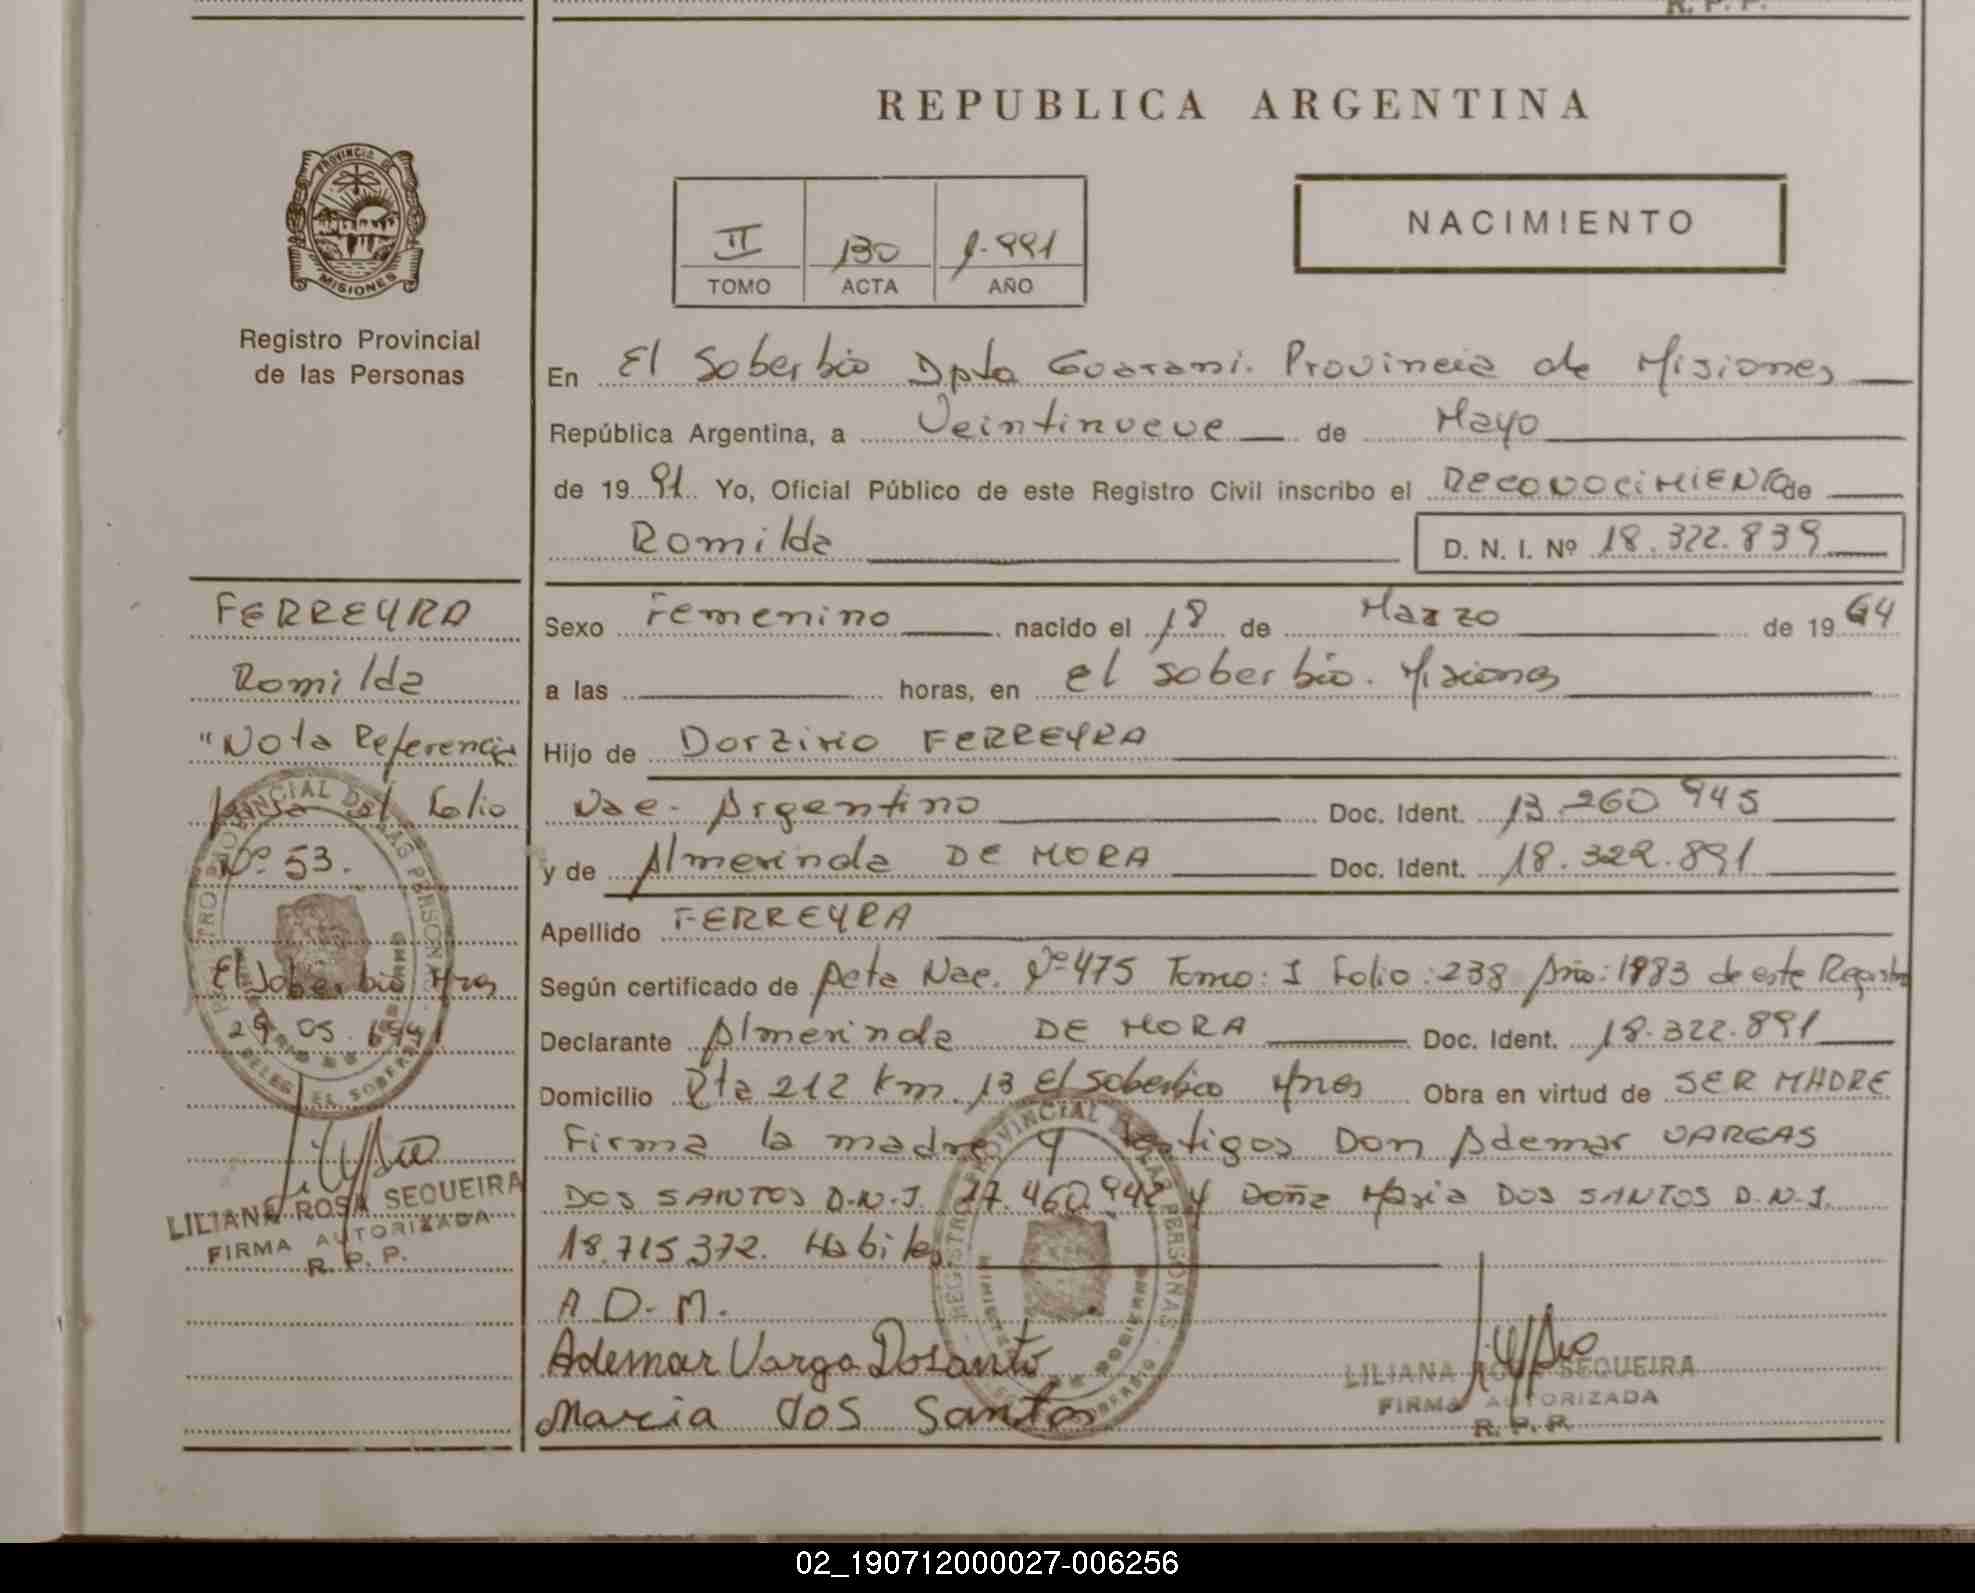 R. P. P.
REPUBLICA ARGENTINA
PROVINCIA DE
MISIONES
Registro Provincial
de las Personas
II 130 1.991
TOMO ACTA AÑO
NACIMIENTO
En El Soberbio Dpto Guarani. Provincia de Misiones
República Argentina, a Veintinueve de Mayo
de 1991 Yo, Oficial Público de este Registro Civil inscribo el RECONOCIMIENTO de
Romilda D. N. I. Nº 18.322.839
FERREYRA
Romilda
"Nota Referencia
pasa al folio
Nº 53.
El Soberbio Mnes
29 05. 1991
LILIANA ROSA SEQUEIRA
FIRMA AUTORIZADA
R. P. P.
Sexo Femenino nacido el 18 de Marzo de 1964
a las horas, en el Soberbio. Misiones
Hijo de Dorzirio FERREYRA
Nac. Argentino Doc. Ident. 13.260.945
y de Almerinda DE MORA Doc. Ident. 18.322.891
Apellido FERREYRA
Según certificado de Acta Nac. Nº 475 Tomo: I Folio: 238 Año: 1983 de este Registro
Declarante Almerinda DE MORA Doc. Ident. 18.322.891
Domicilio Rta 212 Km. 13 El Soberbio Mnes Obra en virtud de SER MADRE
Firma la madre y testigos Don Ademar VARGAS
DOS SANTOS D.N.I. 17.460.942 y Doña Maria DOS SANTOS D.N.I.
18.715.372. Habiles
A D. M.
Ademar Varga Dosanto
Maria dos Santos
LILIANA ROSA SEQUEIRA
FIRMA AUTORIZADA
R. P. P.
02_190712000027-006256